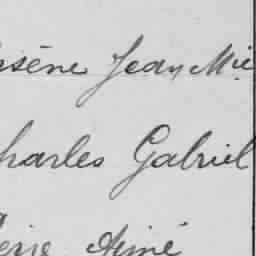 sène Jean Mie
harles Gabriel
Aimé